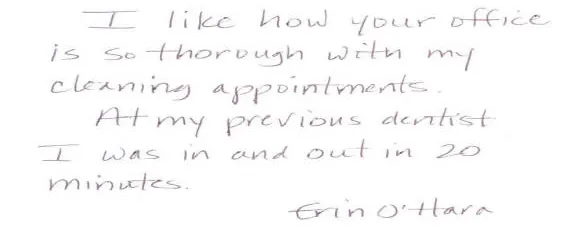 I like how your office
is so thorough with my
cleaning appointments.
At my previous dentist
I was in and out in 20
minutes.
Erin O'Hara